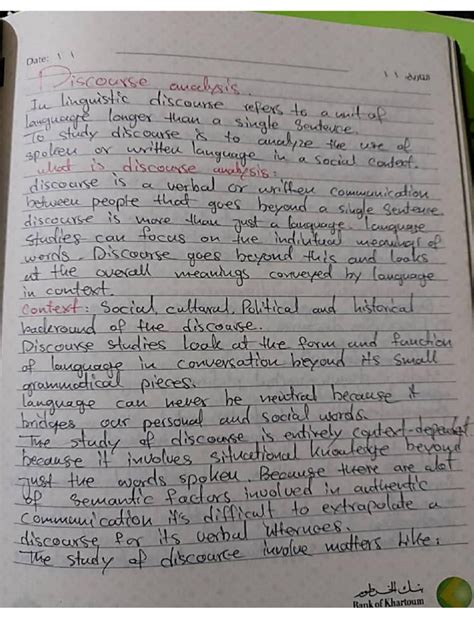 Date: ١ ١
١ ١ التاريخ
Discourse analysis.
In linguistic discourse refers to a unit of
language longer than a single sentence.
To study discourse is to analyze the use of
spoken or written language in a social context.
what is discourse analysis:
discourse is a verbal or written communication
between people that goes beyond a single sentence
discourse is more than just a language. language
studies can focus on the indiutual meanings of
words. Discourse goes beyond this and looks
at the overall meanings conveyed by language
in context.
Context: Social, cultural, Political and historical
backround of the discourse.
Discourse studies look at the form and function
of language in conversation beyond its small
grammatical pieces.
language can never be neutral because it
bridges our personal and social words.
The study of discourse is entirely context-dependent
because it involves situational knowledge beyond
just the words spoken. Because there are alot
of semantic factors involved in authentic
communication it's difficult to extrapolate a
discourse for its verbal utternces.
The study of discource involve matters like:
بنك الخرطوم
Bank of Khartoum